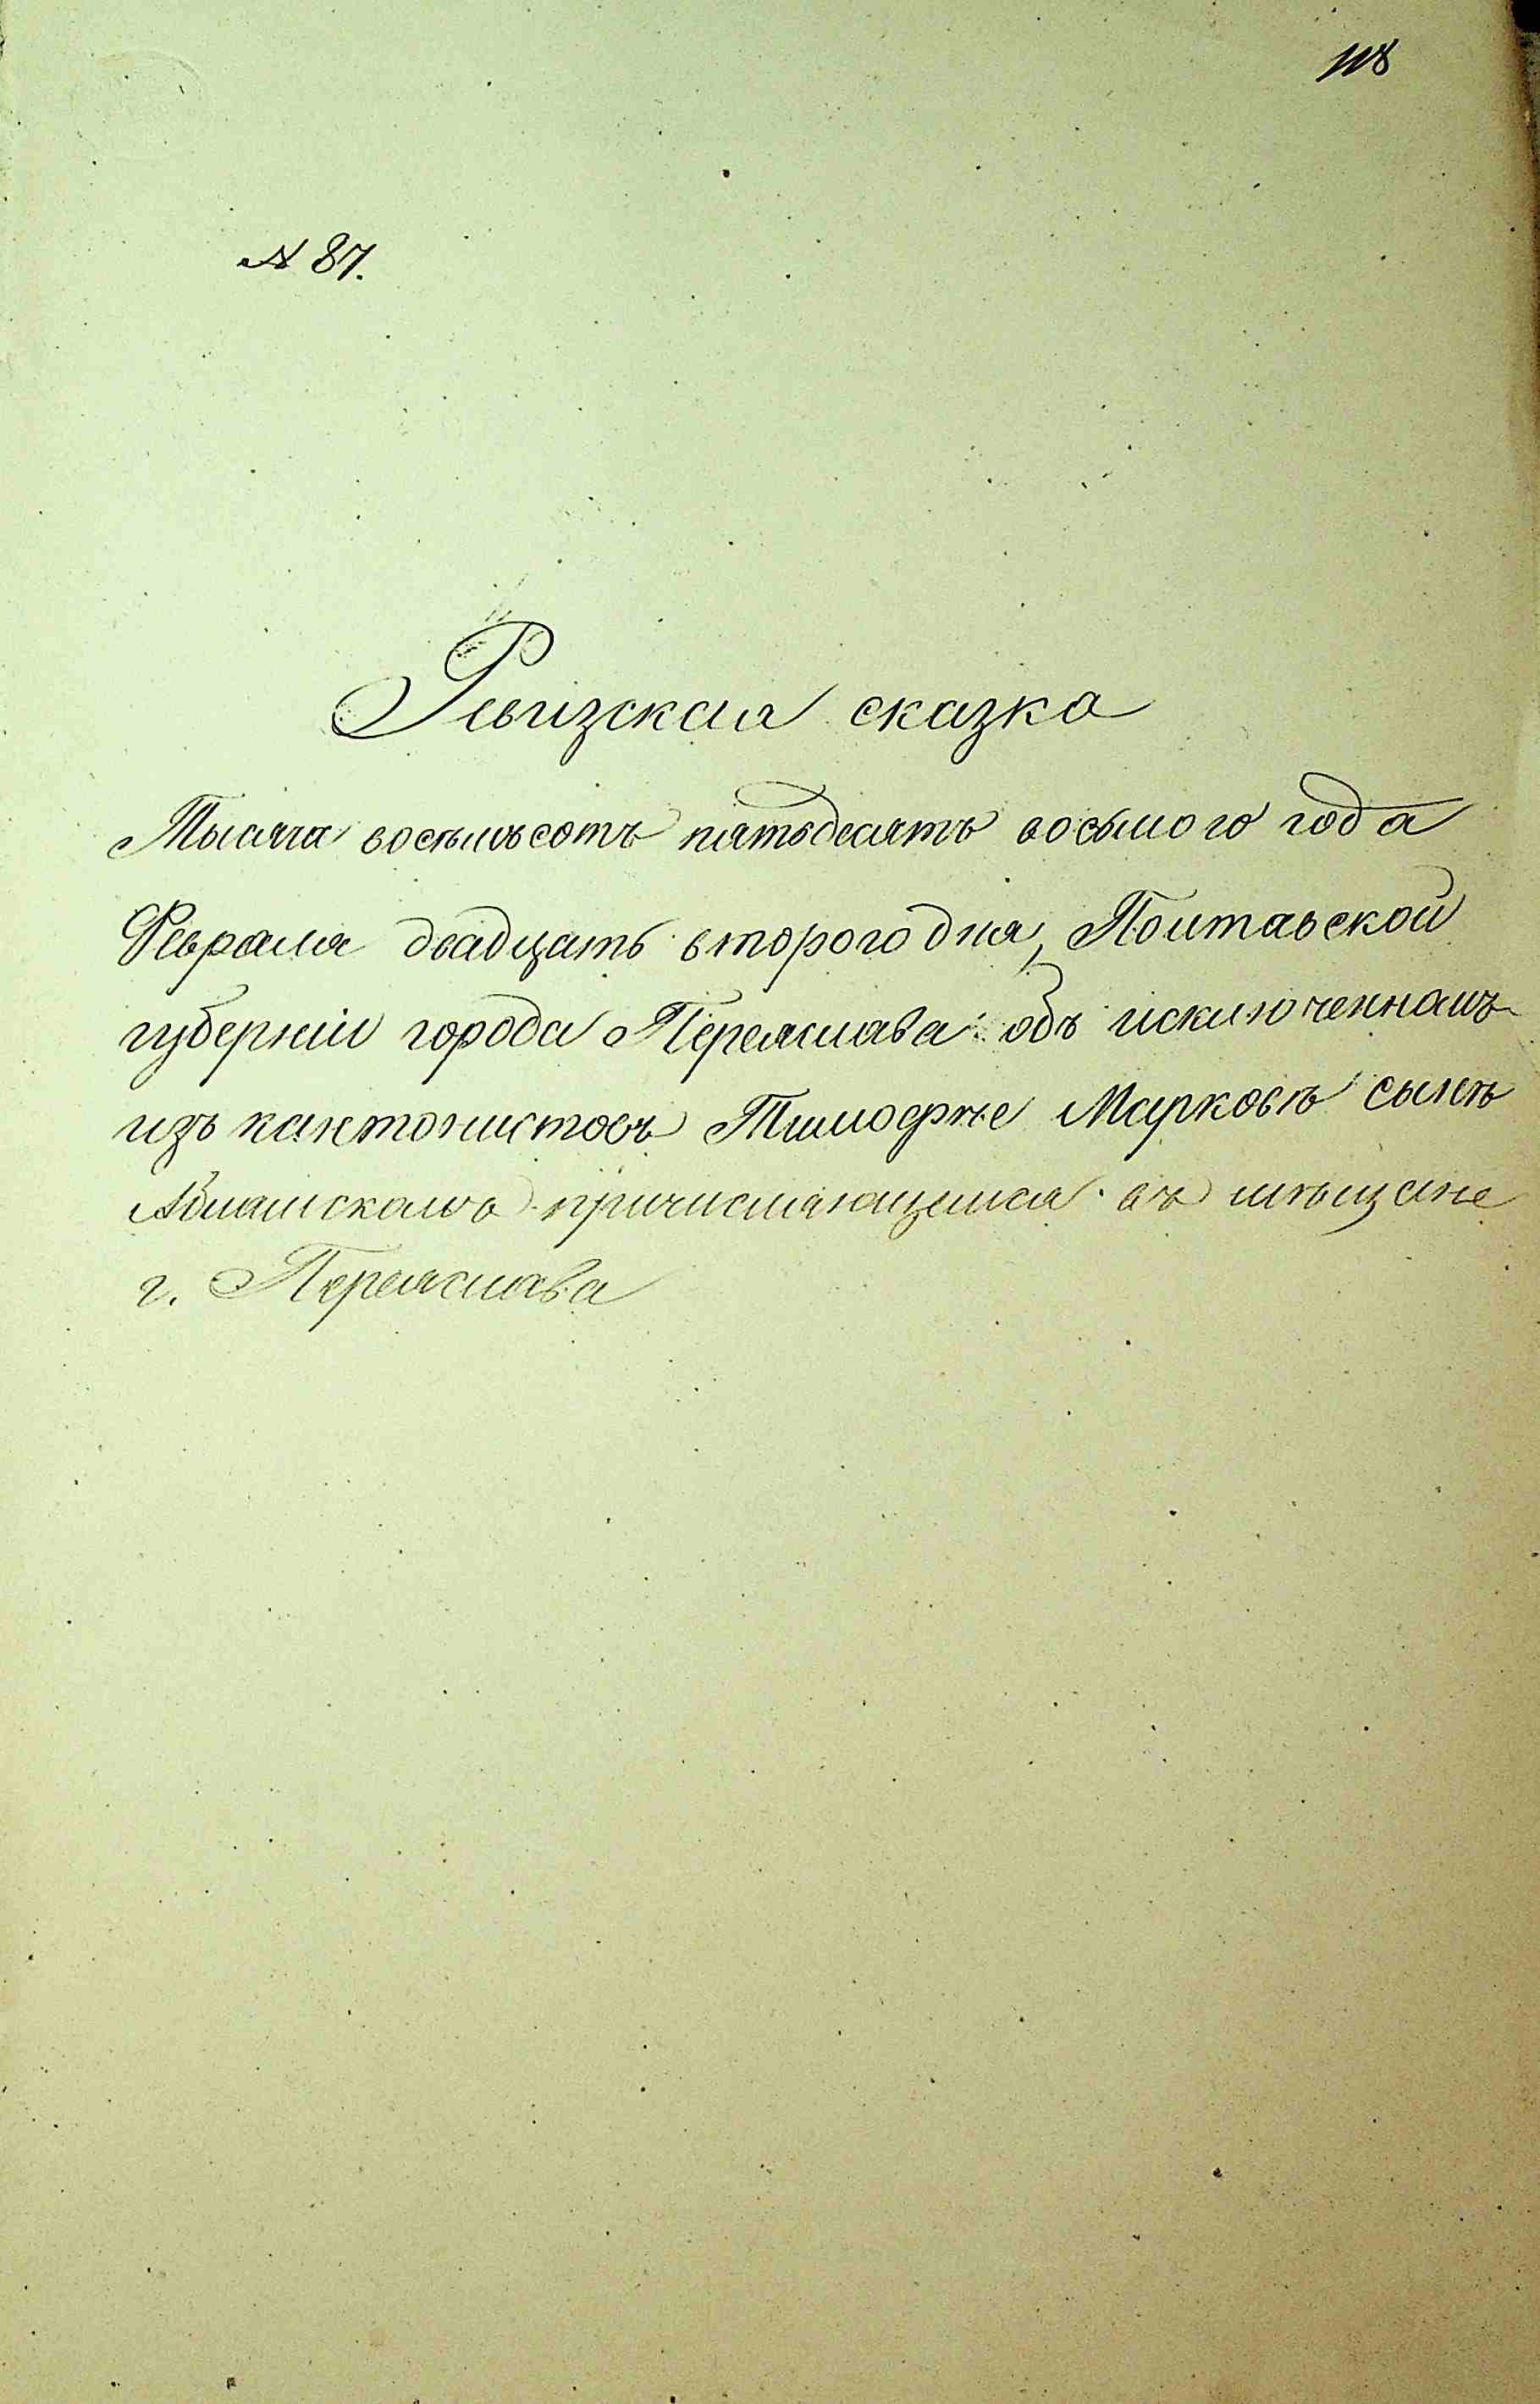 118
№ 87.
Ревизская сказка
Тысяча восемьсотъ пятьдесятъ восьмого года
Февраля двадцать второго дня, Полтавской
губерніи города Переяслава: объ исключенномъ
изъ кантонистовъ Тимофѣе Марковѣ сынѣ
причисляющемся въ мѣщане
г. Переяслава